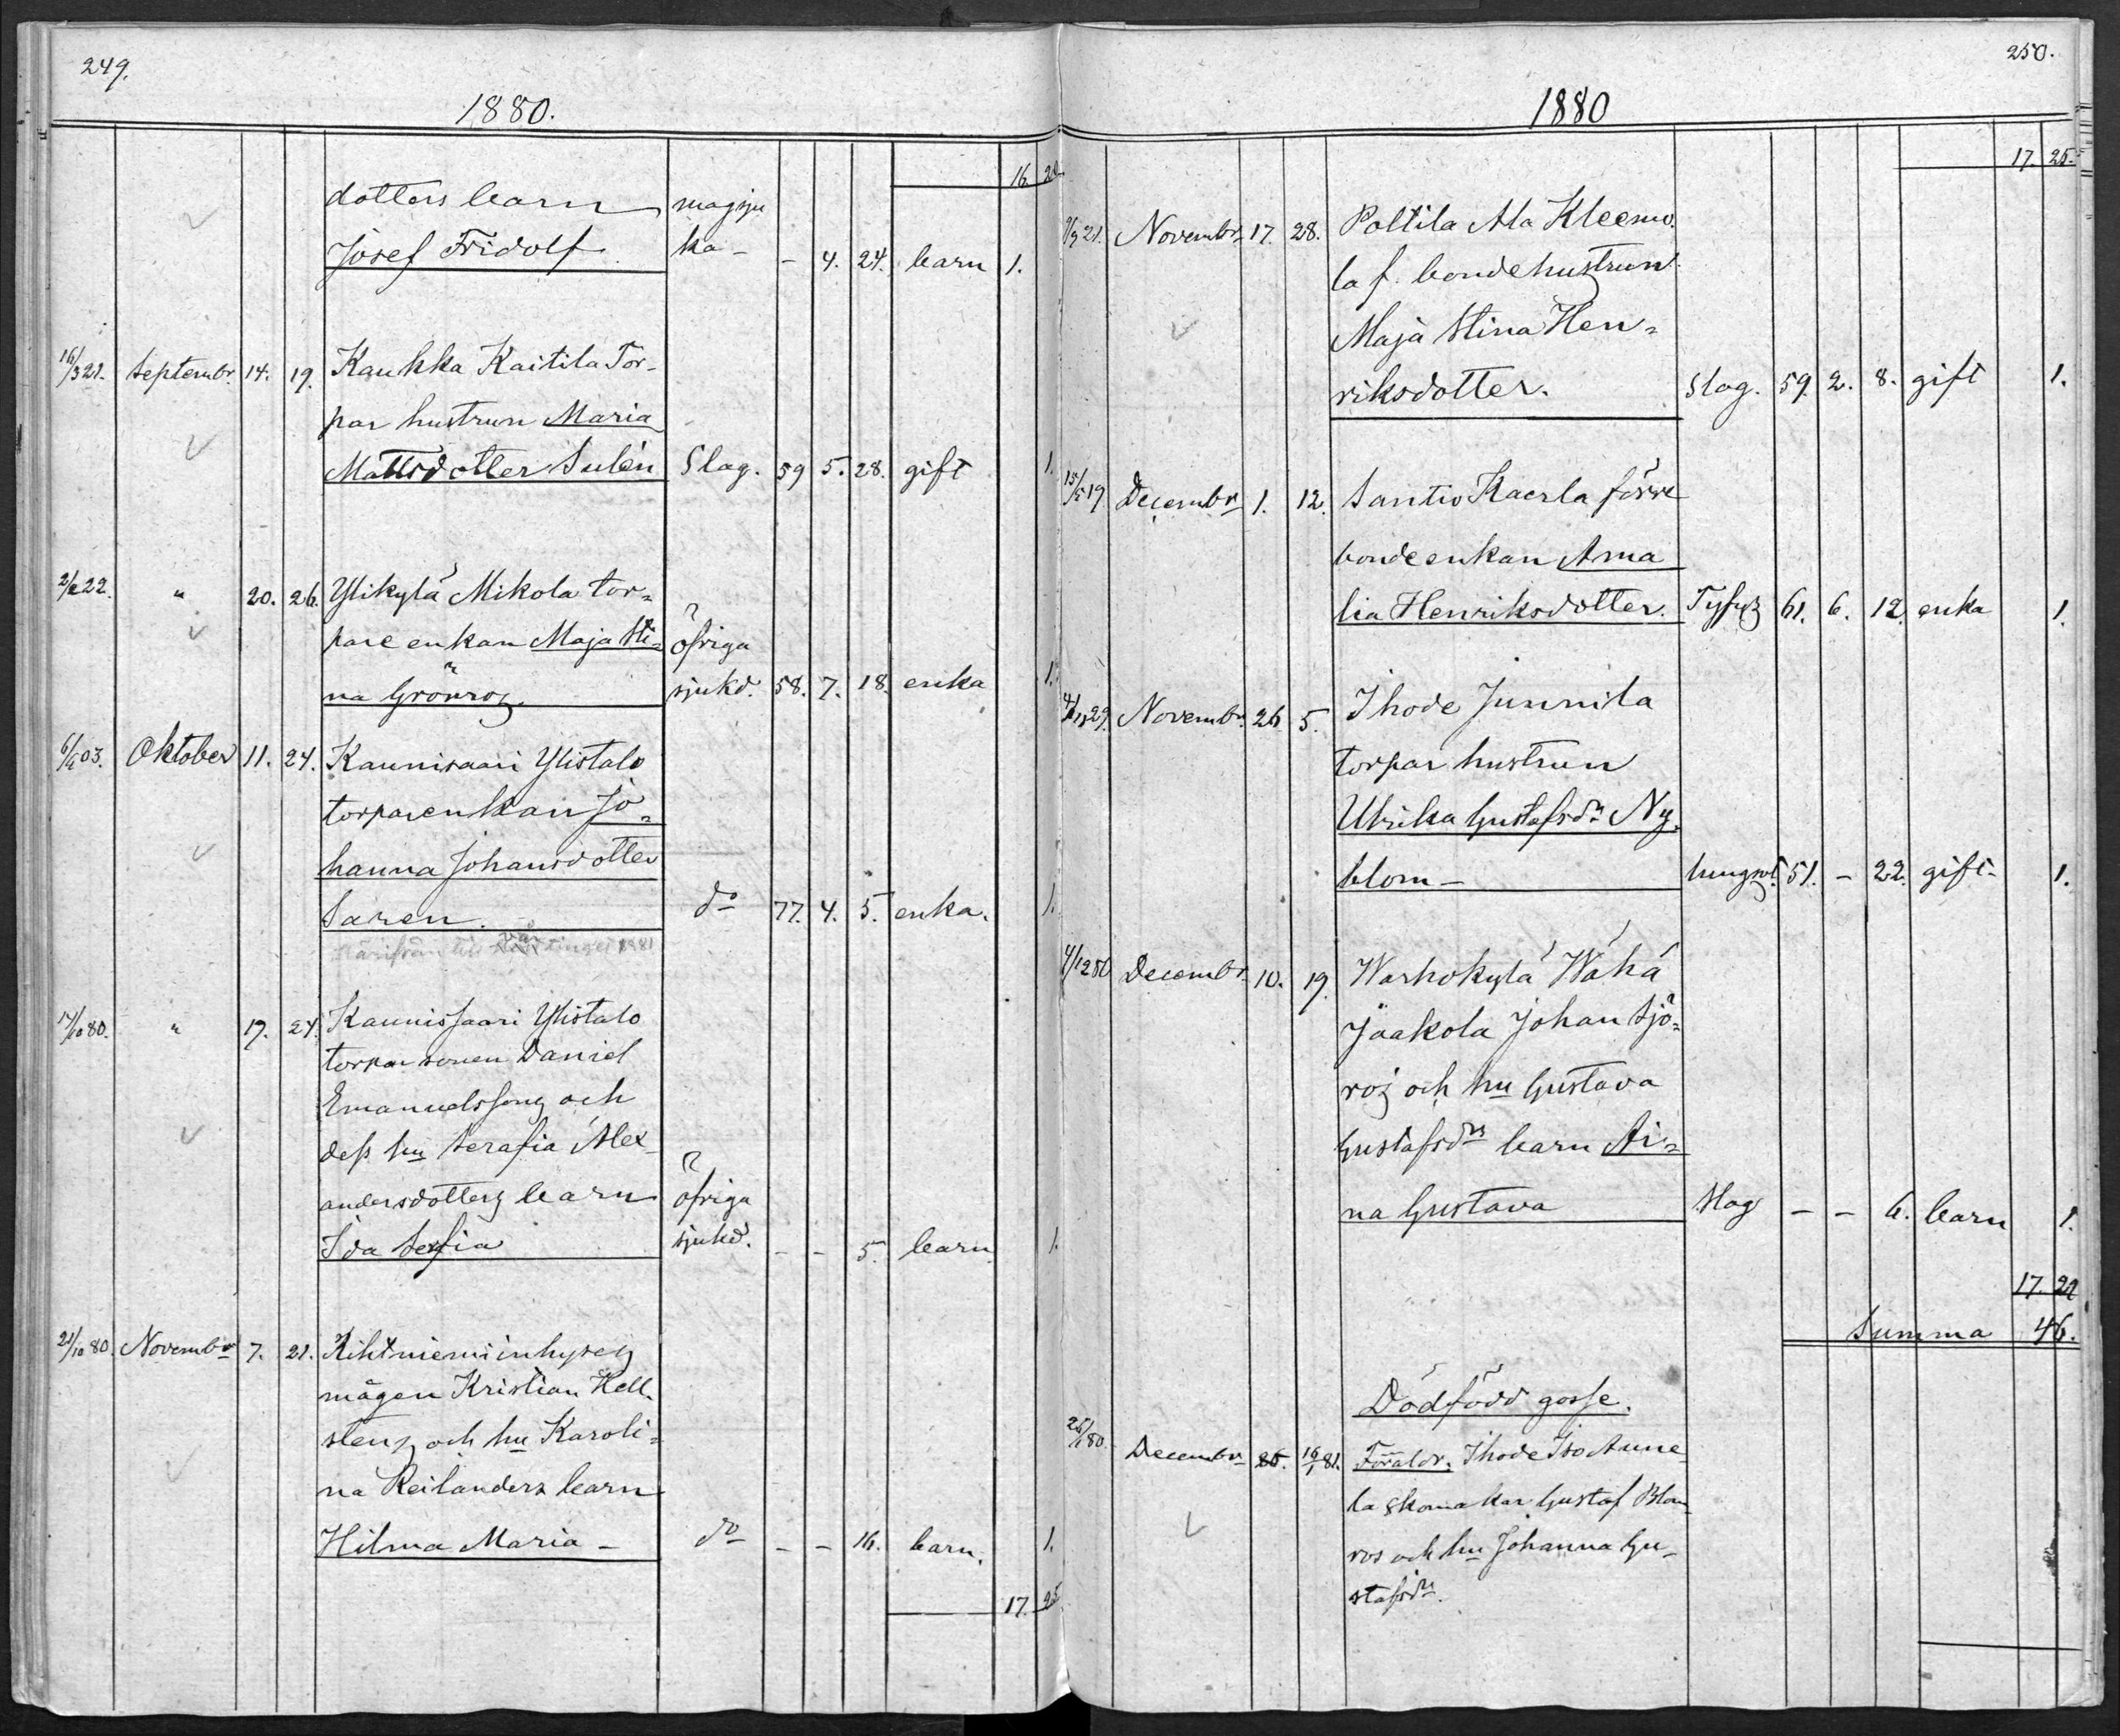 249.
1880.
16. 20
dotters barn magsju
Josef Fridolf ka - - 4. 24. barn 1.
16/3 21. Septembr. 14. 19. Kaukka Kaitila Tor-
par hustrun Maria
Mattsdotter Sulén Slag. 59 5. 28. gift 1.
2/2 22. " 20. 26. Ylikylä Mikola tor-
pare enkan Maja Sti- öfriga
na Grönroz. sjukd. 58. 7. 18. enka 1.
6/6 03. Oktober 11. 24. Kaunisaari Ylistalo
torparenkan Jo-
hanna Johansdotter
Saren. do 77. 4. 5. enka. 1.
Härifrån till vår tinget 1881
14/10 80. " 19. 24. Kaunissaari Ylistalo
torpar sonen Daniel
Emanuelssons och
dess hu Serafia Alex-
andersdotters barn öfriga
Ida Sofia sjukd. - - 5. barn 1.
21/10 80. Novembr 7. 21. Rihtniemi inhyses
mågen Kristian Hell-
stens och hu Karoli-
na Reilanders barn
Hilma Maria - do - - 16. barn. 1.
17. 25
250.
1880
17. 25.
9/9 21. Novembr 17. 28. Poltila Ala Kleemo-
la f. bondehustrun
Maja Stina Hen-
riksdotter. Slag. 59. 2. 8. gift 1.
15/5 19 Decembr 1. 12. Santio Kaerla förre
bondeenkan Ama
lia Henriksdotter. Tyfus 61. 6. 12. enka 1.
4/11 29. Novembr. 26 5. Ihode Junnila
torpar hustrun
Ulrika Gustafsdr Ny-
blom - lungsot. 51. - 22. gift - 1.
4/12 80 Decembr 10. 19. Warhokylä Wähä
Jaakola Johan Sjö-
ros och hu Gustava
Gustafsdrs barn Ai-
na Gustava Slag - - 6. barn 1.
17. 29
Summa 46.
Dödfödd gosse.
25/ 80. Decembr 25. 16/1 81. Föräldr. Ihode Iso Anne
la skomakar Gustaf Blom
ros och hu Johanna Gu-
stafsdr.